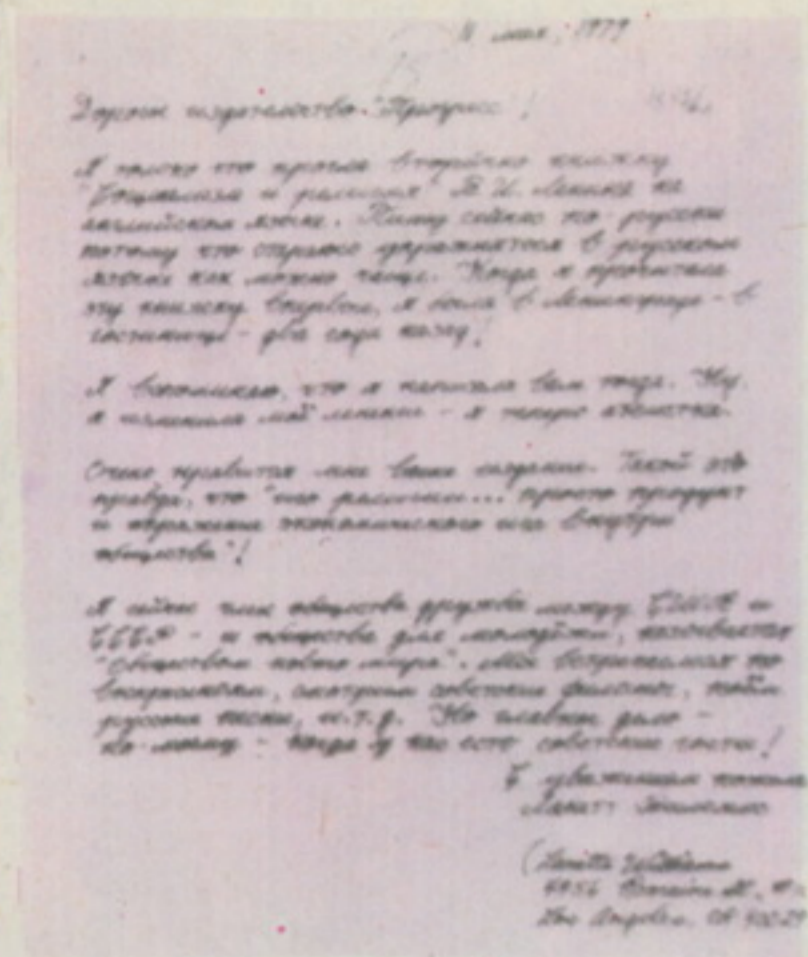 11 мая, 1979
Дорогое издательство "Прогресс"!
Я только что прочла вторично книжку
"Социализм и религия" В. И. Ленина на
английском языке. Пишу сейчас по-русски
потому что стараюсь упражняться в русском
языке как можно чаще. Когда я прочитала
эту книжку впервые, я была в Ленинграде - в
гостинице - два года назад!
Я вспоминаю, что я написала вам тогда. Ну,
я изменила моё мнение - я теперь атеистка.
Очень нравится мне ваше издание. Такой это
правда, что религии... просто продукт
и отражение экономического ига внутри
общества"!
Я сейчас член общества дружбы между США и
СССР - и общества для молодёжи, называется
"Обществом нового мира". Мы встречаемся по
воскресеньям, смотрим советские фильмы, поём
русские песни, и.т.д. Но главное дело -
по-моему - когда у нас есть советские гости!
С уважением
Los Angeles, CA